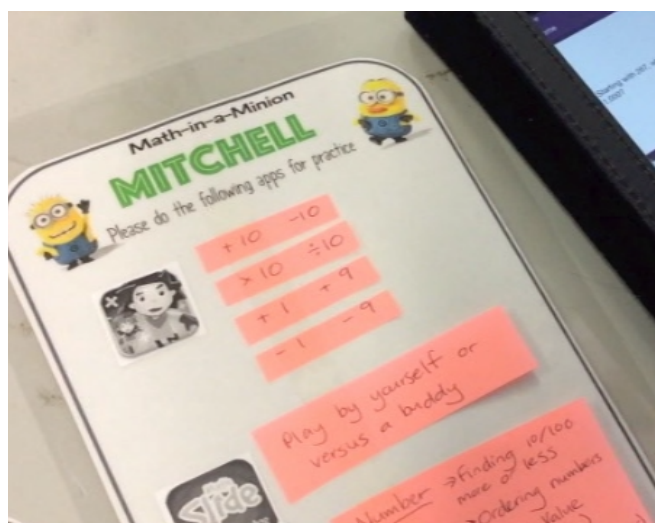 Math-in-a-Minion
MITCHELL
Please do the following apps for practice
+10 -10
×10 ÷10
+1 +9
-1 -9
Play by yourself or
versus a buddy
Slide
Number → Finding 10/100
more or less
→ Ordering numbers
Value
Starting with 267,